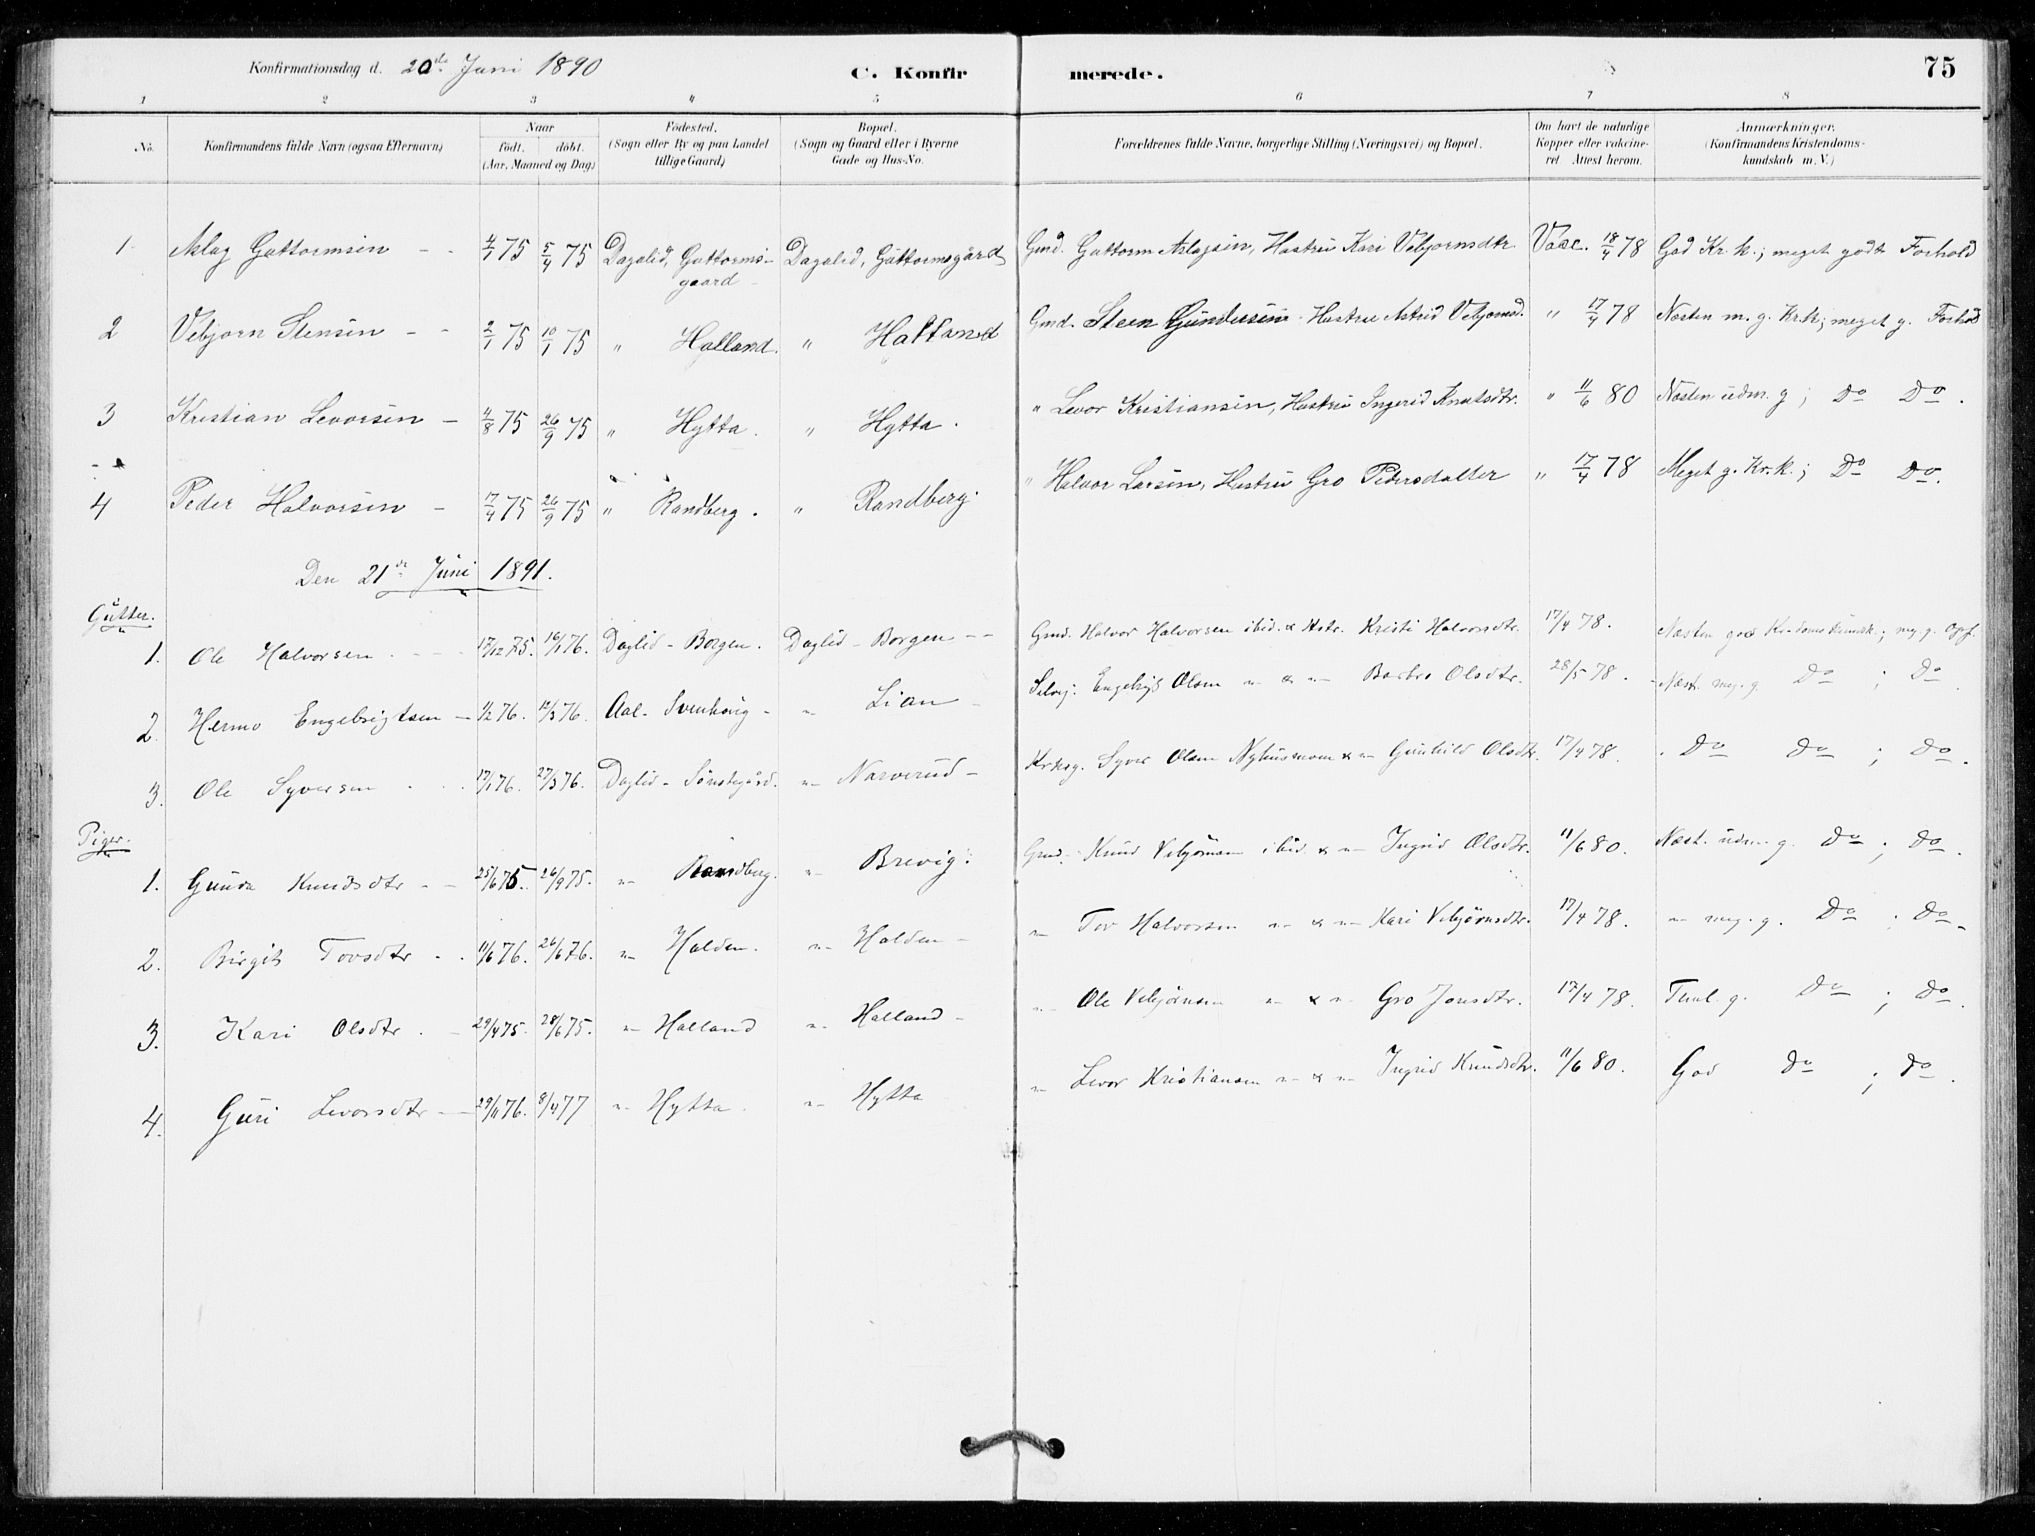 Konfirmationsdag d. 20de Juni 1890 C. Konfirmerede. 75
1 2 3 4 5 6 7 8
No. Konfirmandens fulde Navn (ogsaa Efternavn) Naar født. døbt. (Aar, Maaned og Dag) Fødested. (Sogn eller By og paa Landet tillige Gaard) Bopæl. (Sogn og Gaard eller i Byerne Gade og Hus-No. Forældrenes fulde Navne, borgerlige Stilling (Næringsvei) og Bopæl. Om havt de naturlige Kopper eller vakcineret Attest herom. Anmærkninger. (Konfirmandens Kristendomskundskab m. V.)
1 Aslag Guttormsen - - 4/1 75 5/4 75 Dagalid, Guttormsgaard Dagalid, Guttormsgård Gmd. Guttorm Aslagsen, Hustru Kari Vebjørnsdtr Vacc. 18/4 78 God Kr. k.; meget godt Forhold
2 Vebjørn Stensen - - 2/1 75 10/1 75 " Halland. " Halland Gmd. Steen Gundersen Hustru Astrid Vebjørnsd. " 17/4 78 Næsten m. g. Kr.k; meget g. Forhold
3 Kristian Levorsen - 4/8 75 26/9 75 " Hytta. " Hytta. " Levor Kristiansen, Hustru Ingerid Knutsdtr. " 11/6 80 Næsten udm. g; Do Do.
4 Peder Halvorsen - 17/4 75 26/9 75 " Randberg. " Randberg. " Halvor Larsen, Hustru Gro Pedersdatter " 17/4 78 Meget g. Kr.k.; Do Do.
Den 21de Juni 1891.
Gutter.
1. Ole Halvorsen. 17/12 75. 16/1 76. Daglid - Borgen. Daglid - Borgen - - Gmd. Halvor Halvorsen ibid. & Hstr. Kristi Halvorsdtr. 17/4 78. Næsten god Kr.domskundsk.; meg. g. Opf.
2. Hermo Engebrigtsen - 1/2 76. 12/3 76. Aal - Svenhoug - " Lian - Selvej. Engebrigt Olsen " & " Barbro Olsdtr. 28/5 78. Næst. meg. g. Do; Do.
3. Ole Syversen . . 17/1 76. 27/3 76. Daglid - Sønstegård. " Narverud - Syver Olsen Nyhusmoen & " Gunhild Olsdtr. 17/4 78. Do Do; Do.
Piger.
1. Gunda Knudsdtr - - 25/6 75. 26/9 75. " Randberg. " Brevig. Gmd. Knud Vebjørnsen ibid & " Ingrid Olsdtr. 11/6 80. Næst. udm. g. Do; Do.
2. Birgit Torsdtr . . 11/6 76. 26/6 76. " Halden. " Halden - " Tor Halvorsen " & " Kari Vebjørnsdtr. 17/4 78. " meg. g. Do; Do.
3. Kari Olsdtr . - 29/4 75. 28/6 75. " Halland " Halland - " Ole Vebjørnsen " & " Gro Jonsdtr. 17/4 78. Teml. g. Do; Do.
4. Guri Levorsdtr - 29/11 76. 8/4 77 " Hytta. " Hytta " Levor Kristiansen " & " Ingrid Knudsdtr. 11/6 80. God Do; Do.